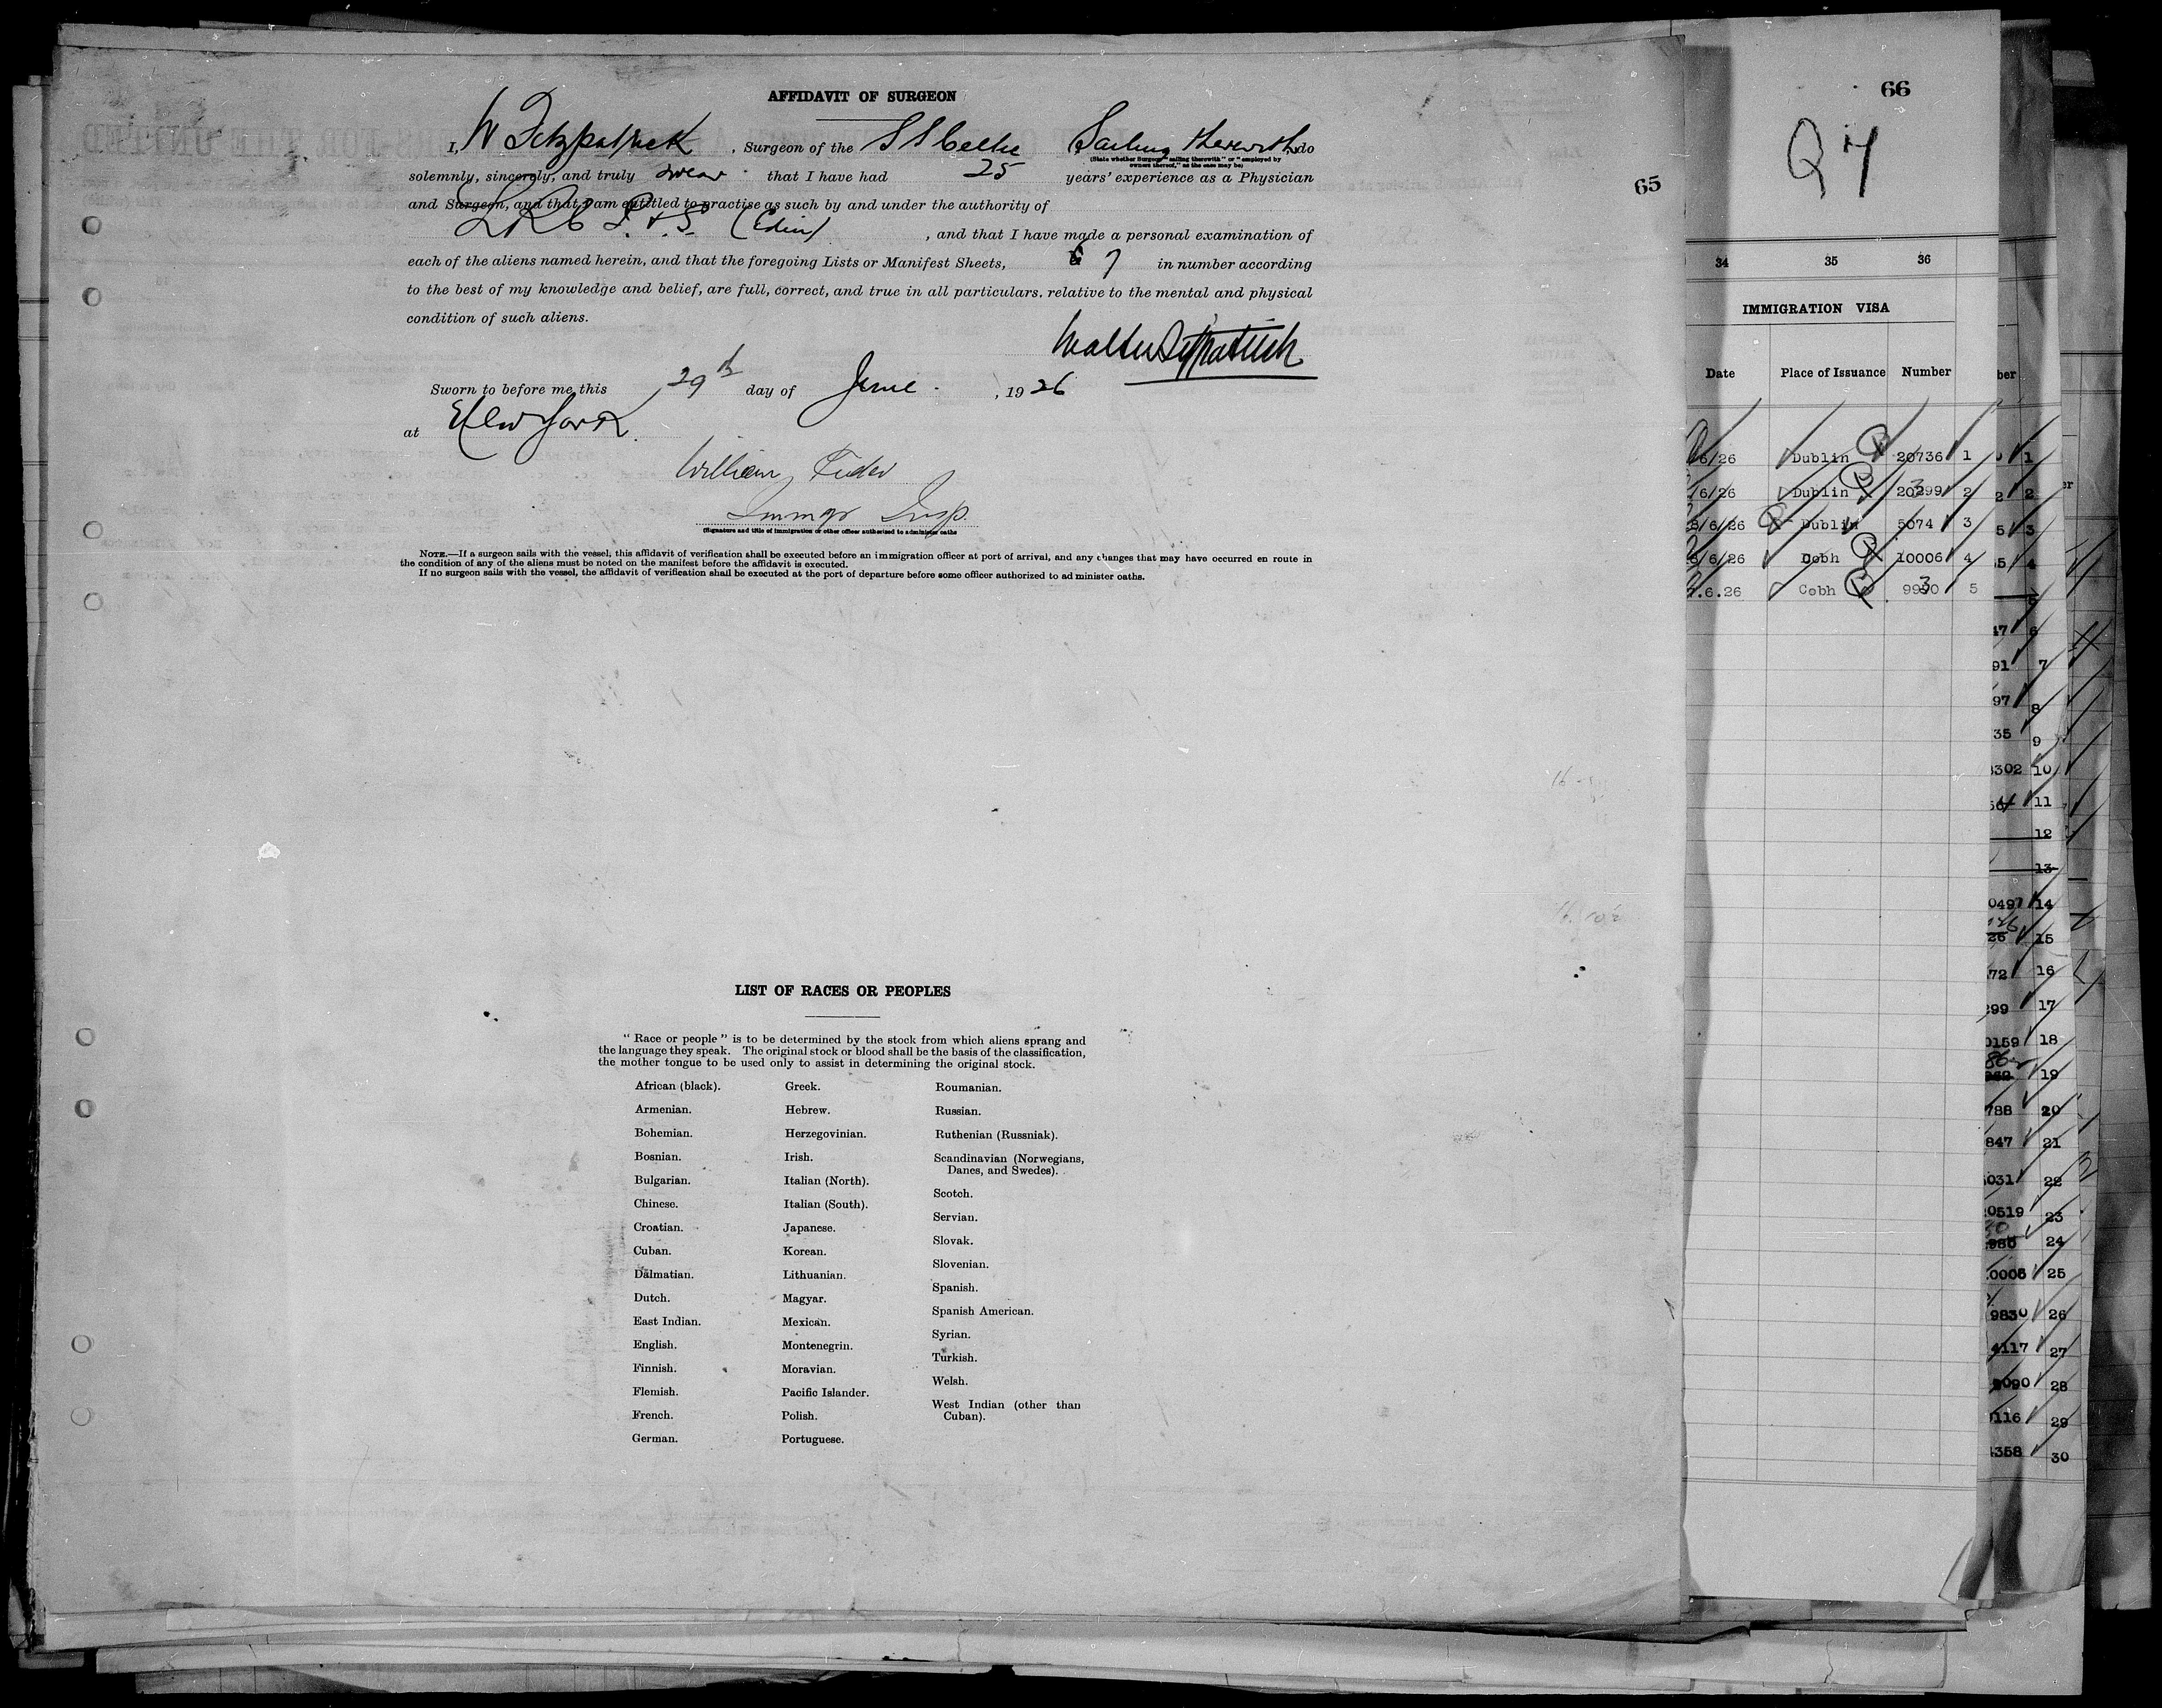 AFFIDAVIT OF SURGEON
I, W Fitzpatrick, Surgeon of the SS Celtic Sailing therewith, do
(State whether Surgeon "sailing therewith" or "employed by
owners thereof," as the case may be)
solemnly, sincerely, and truly swear that I have had 25 years' experience as a Physician
and Surgeon, and that I am entitled to practise as such by and under the authority of
L R C P. & S. (Edin), and that I have made a personal examination of
each of the aliens named herein, and that the foregoing Lists or Manifest Sheets, 7 in number according
to the best of my knowledge and belief, are full, correct, and true in all particulars, relative to the mental and physical
condition of such aliens.
Walter Fitzpatrick
Sworn to before me this 29th day of June, 1926
at New York
William
Immgr Insp.
(Signature and title of immigration or other officer authorized to administer oaths
NOTE.—If a surgeon sails with the vessel, this affidavit of verification shall be executed before an immigration officer at port of arrival, and any changes that may have occurred en route in
the condition of any of the aliens must be noted on the manifest before the affidavit is executed.
If no surgeon sails with the vessel, the affidavit of verification shall be executed at the port of departure before some officer authorized to administer oaths.
65
LIST OF RACES OR PEOPLES
"Race or people" is to be determined by the stock from which aliens sprang and
the language they speak. The original stock or blood shall be the basis of the classification,
the mother tongue to be used only to assist in determining the original stock.
African (black).
Armenian.
Bohemian.
Bosnian.
Bulgarian.
Chinese.
Croatian.
Cuban.
Dalmatian.
Dutch.
East Indian.
English.
Finnish.
Flemish.
French.
German.
Greek.
Hebrew.
Herzegovinian.
Irish.
Italian (North).
Italian (South).
Japanese.
Korean.
Lithuanian.
Magyar.
Mexican.
Montenegrin.
Moravian.
Pacific Islander.
Polish.
Portuguese.
Roumanian.
Russian.
Ruthenian (Russniak).
Scandinavian (Norwegians,
Danes, and Swedes).
Scotch.
Servian.
Slovak.
Slovenian.
Spanish.
Spanish American.
Syrian.
Turkish.
Welsh.
West Indian (other than
Cuban).
66
34 35 36
IMMIGRATION VISA
Date Place of Issuance Number
6/26 Dublin 20736 1
/6/26 Dublin 20399 2
8/6/26 Dublin 5074 3
/6/26 Cobh 10006 4
.6.26 Cobh 9930 5
ber
1
2
3
4
5
47 6
91 7
97 8
35 9
302 10
11
12
13
0497 14
26 15
72 16
299 17
0159 18
19
788 20
847 21
031 22
0519 23
24
0006 25
9830 26
4117 27
9090 28
116 29
358 30